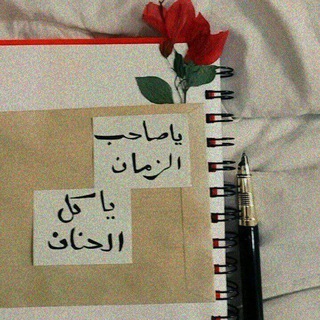 ياصاحب
الزمان
يا كل
الحنان